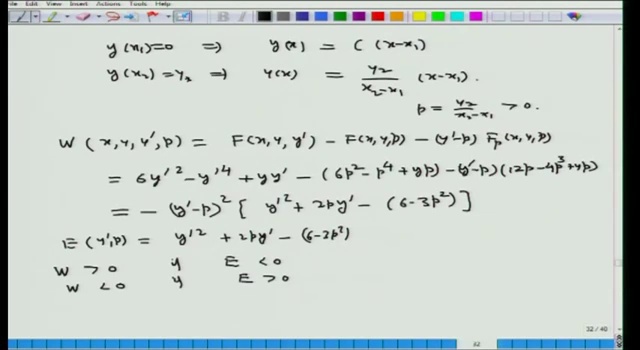 File Edit View Insert Actions Tools Help
y(x₁)=0 ⇒ y(x) = C (x-x₁)
y(x₂) = y₂ ⇒ y(x) = y₂/(x₂-x₁) (x-x₁).
p = y₂/(x₂-x₁) > 0.
W(x,y,y',p) = F(x,y,y') - F(x,y,p) - (y'-p) Fp(x,y,p)
= 6y'² - y'⁴ + yy' - (6p² - p⁴ + yp) - (y'-p)(12p - 4p³ + yp)
= - (y'-p)² [ y'² + 2py' - (6-3p²) ]
E(y',p) = y'² + 2py' - (6-3p²)
W > 0 if E < 0
W < 0 if E > 0
32 / 40
32